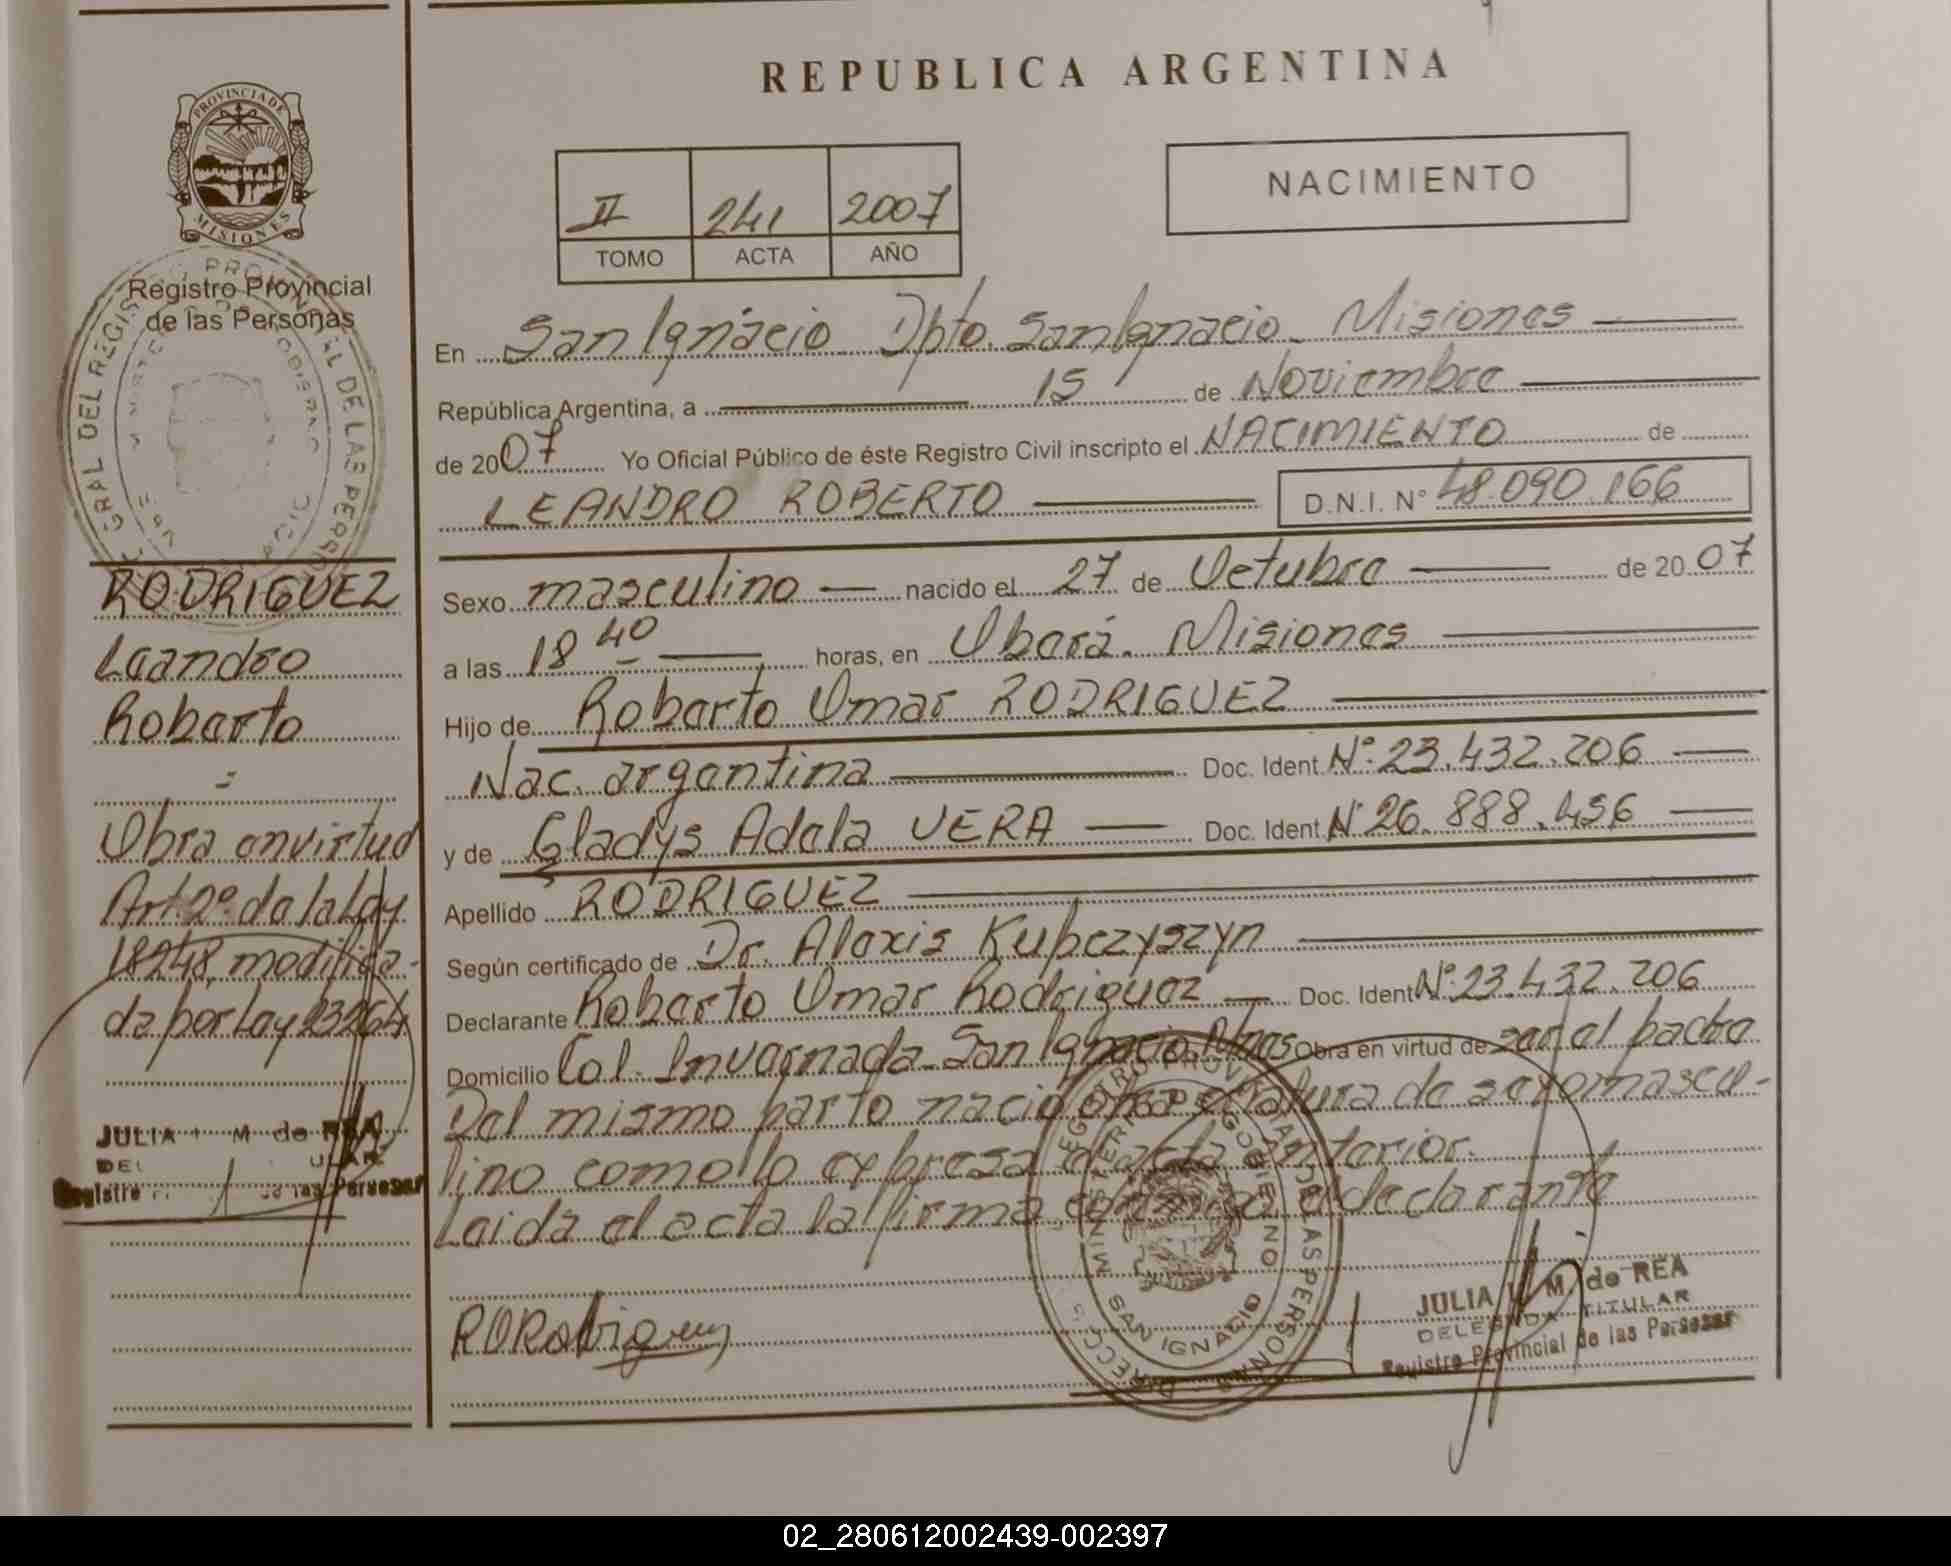 REPUBLICA ARGENTINA
NACIMIENTO
II 241 2007
TOMO ACTA AÑO
PROVINCIA DE
MISIONES
Registro Provincial
de las Personas
RODRIGUEZ
Leandro
Roberto
Obra en virtud
Art. 2º de la Ley
18248, modifica-
da por Ley 23264
JULIA M de REA
Registro de las Personas
En San Ignacio Dpto. San Ignacio. Misiones
República Argentina, a 15 de Noviembre
de 2007 Yo Oficial Público de éste Registro Civil inscripto el NACIMIENTO de
LEANDRO ROBERTO D.N.I. N° 48.090.166
Sexo masculino nacido el 27 de Octubre de 2007
a las 18 40 horas, en Oberá. Misiones
Hijo de Roberto Omar RODRIGUEZ
Nac. argentina Doc. Ident Nº 23.432.206
y de Gladys Adela VERA Doc. Ident Nº 26.888.456
Apellido RODRIGUEZ
Según certificado de Dr. Alexis Kubczyszyn
Declarante Roberto Omar Rodriguez Doc. Ident Nº 23.432.206
Domicilio Col. Invernada San Ignacio Mnes Obra en virtud de ser el padre
Del mismo parto nació otra criatura de sexo mascu-
lino como lo expresa el acta anterior.
Leida el acta la firma, conmigo, el declarante
RORodriguez
REGISTRO PROVINCIAL DE LAS PERSONAS
MINISTERIO DE GOBIERNO
SAN IGNACIO
JULIA M. de REA
DELEGADA TITULAR
Registro Provincial de las Personas
02_280612002439-002397